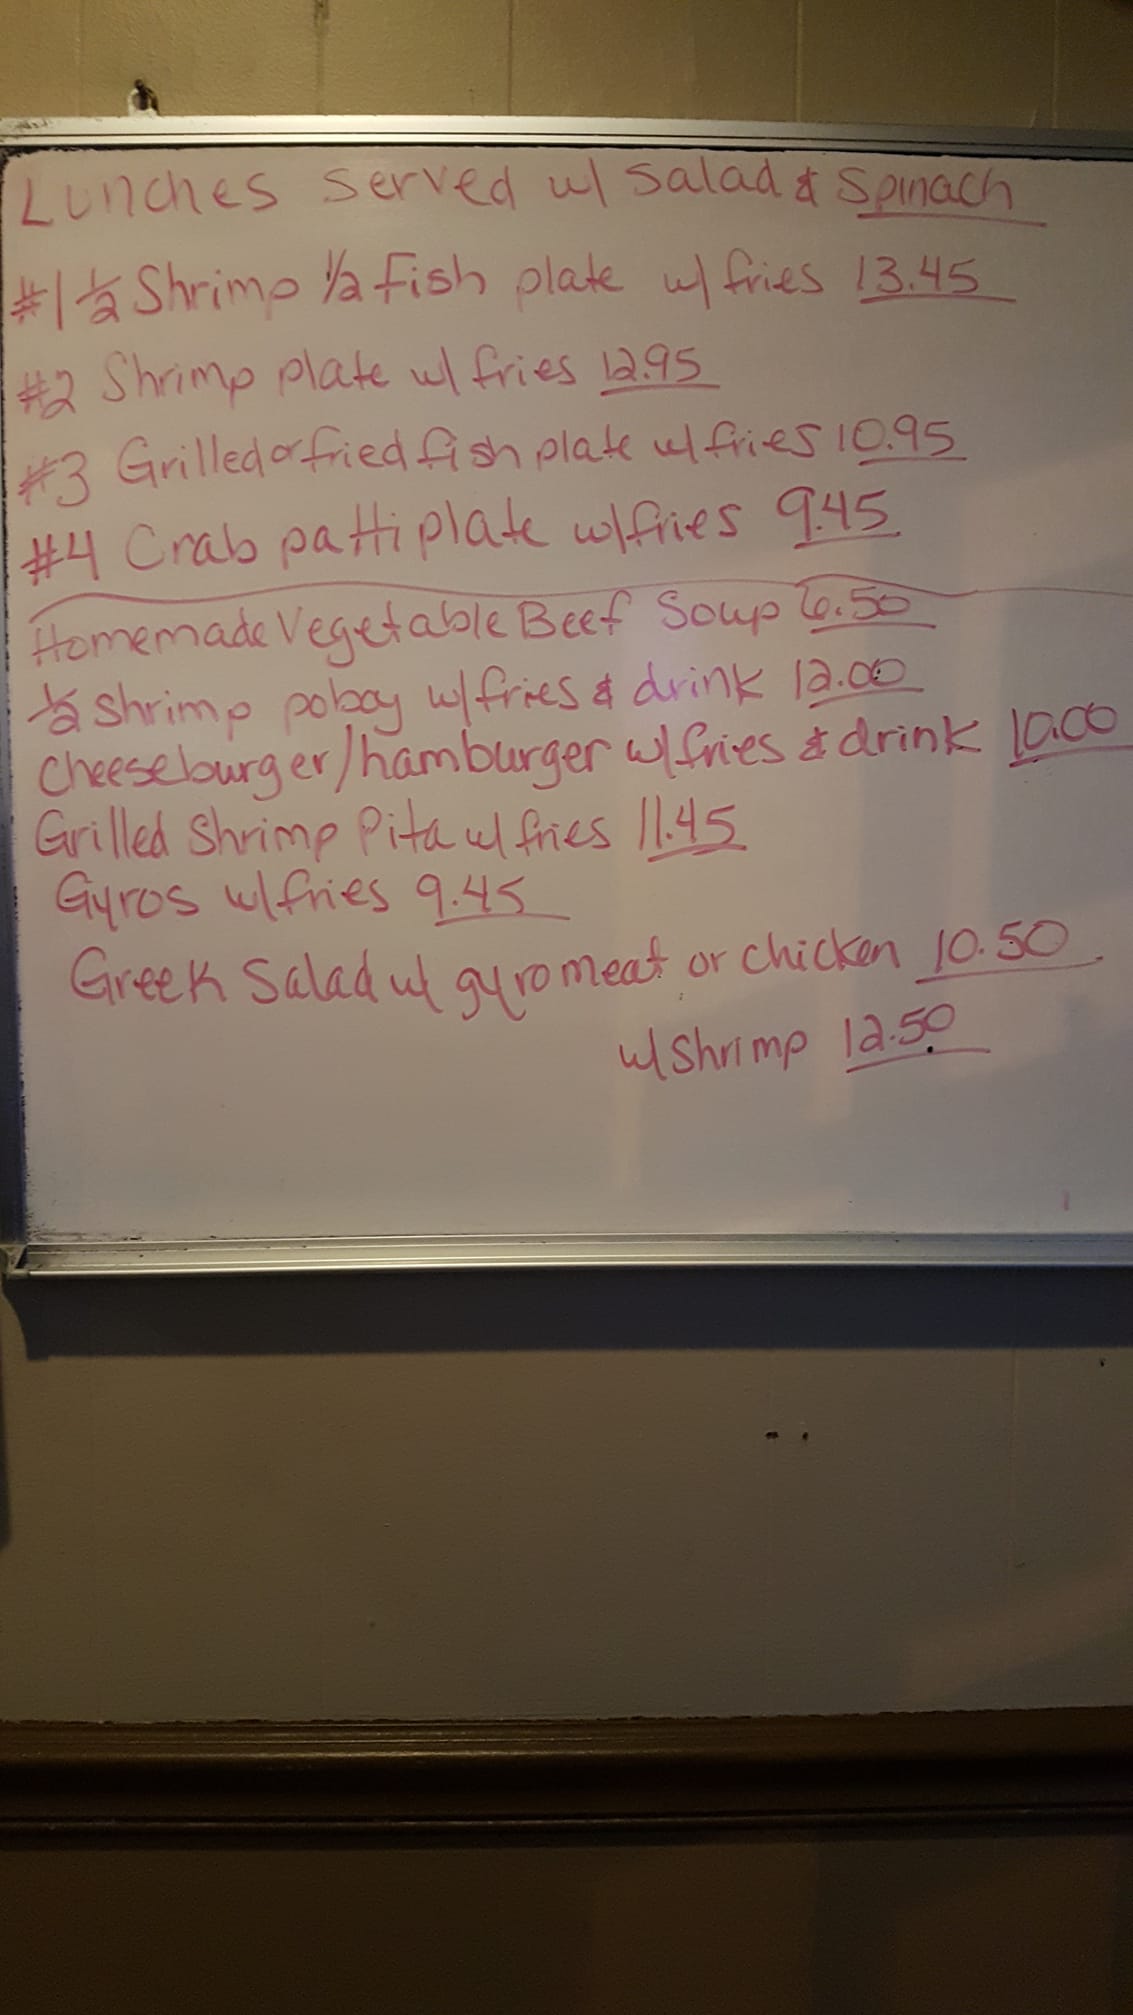 Lunches Served w/ Salad & Spinach
#1 ½ Shrimp ½ Fish plate w/ fries 13.45
#2 Shrimp plate w/ fries 12.95
#3 Grilled or fried fish plate w/ fries 10.95
#4 Crab patti plate w/ fries 9.45
Homemade Vegetable Beef Soup 6.50
½ shrimp poboy w/ fries & drink 12.00
cheeseburger/hamburger w/ fries & drink 10.00
Grilled Shrimp Pita w/ fries 11.45
Gyros w/ fries 9.45
Greek Salad w/ gyro meat or chicken 10.50
w/ Shrimp 12.50